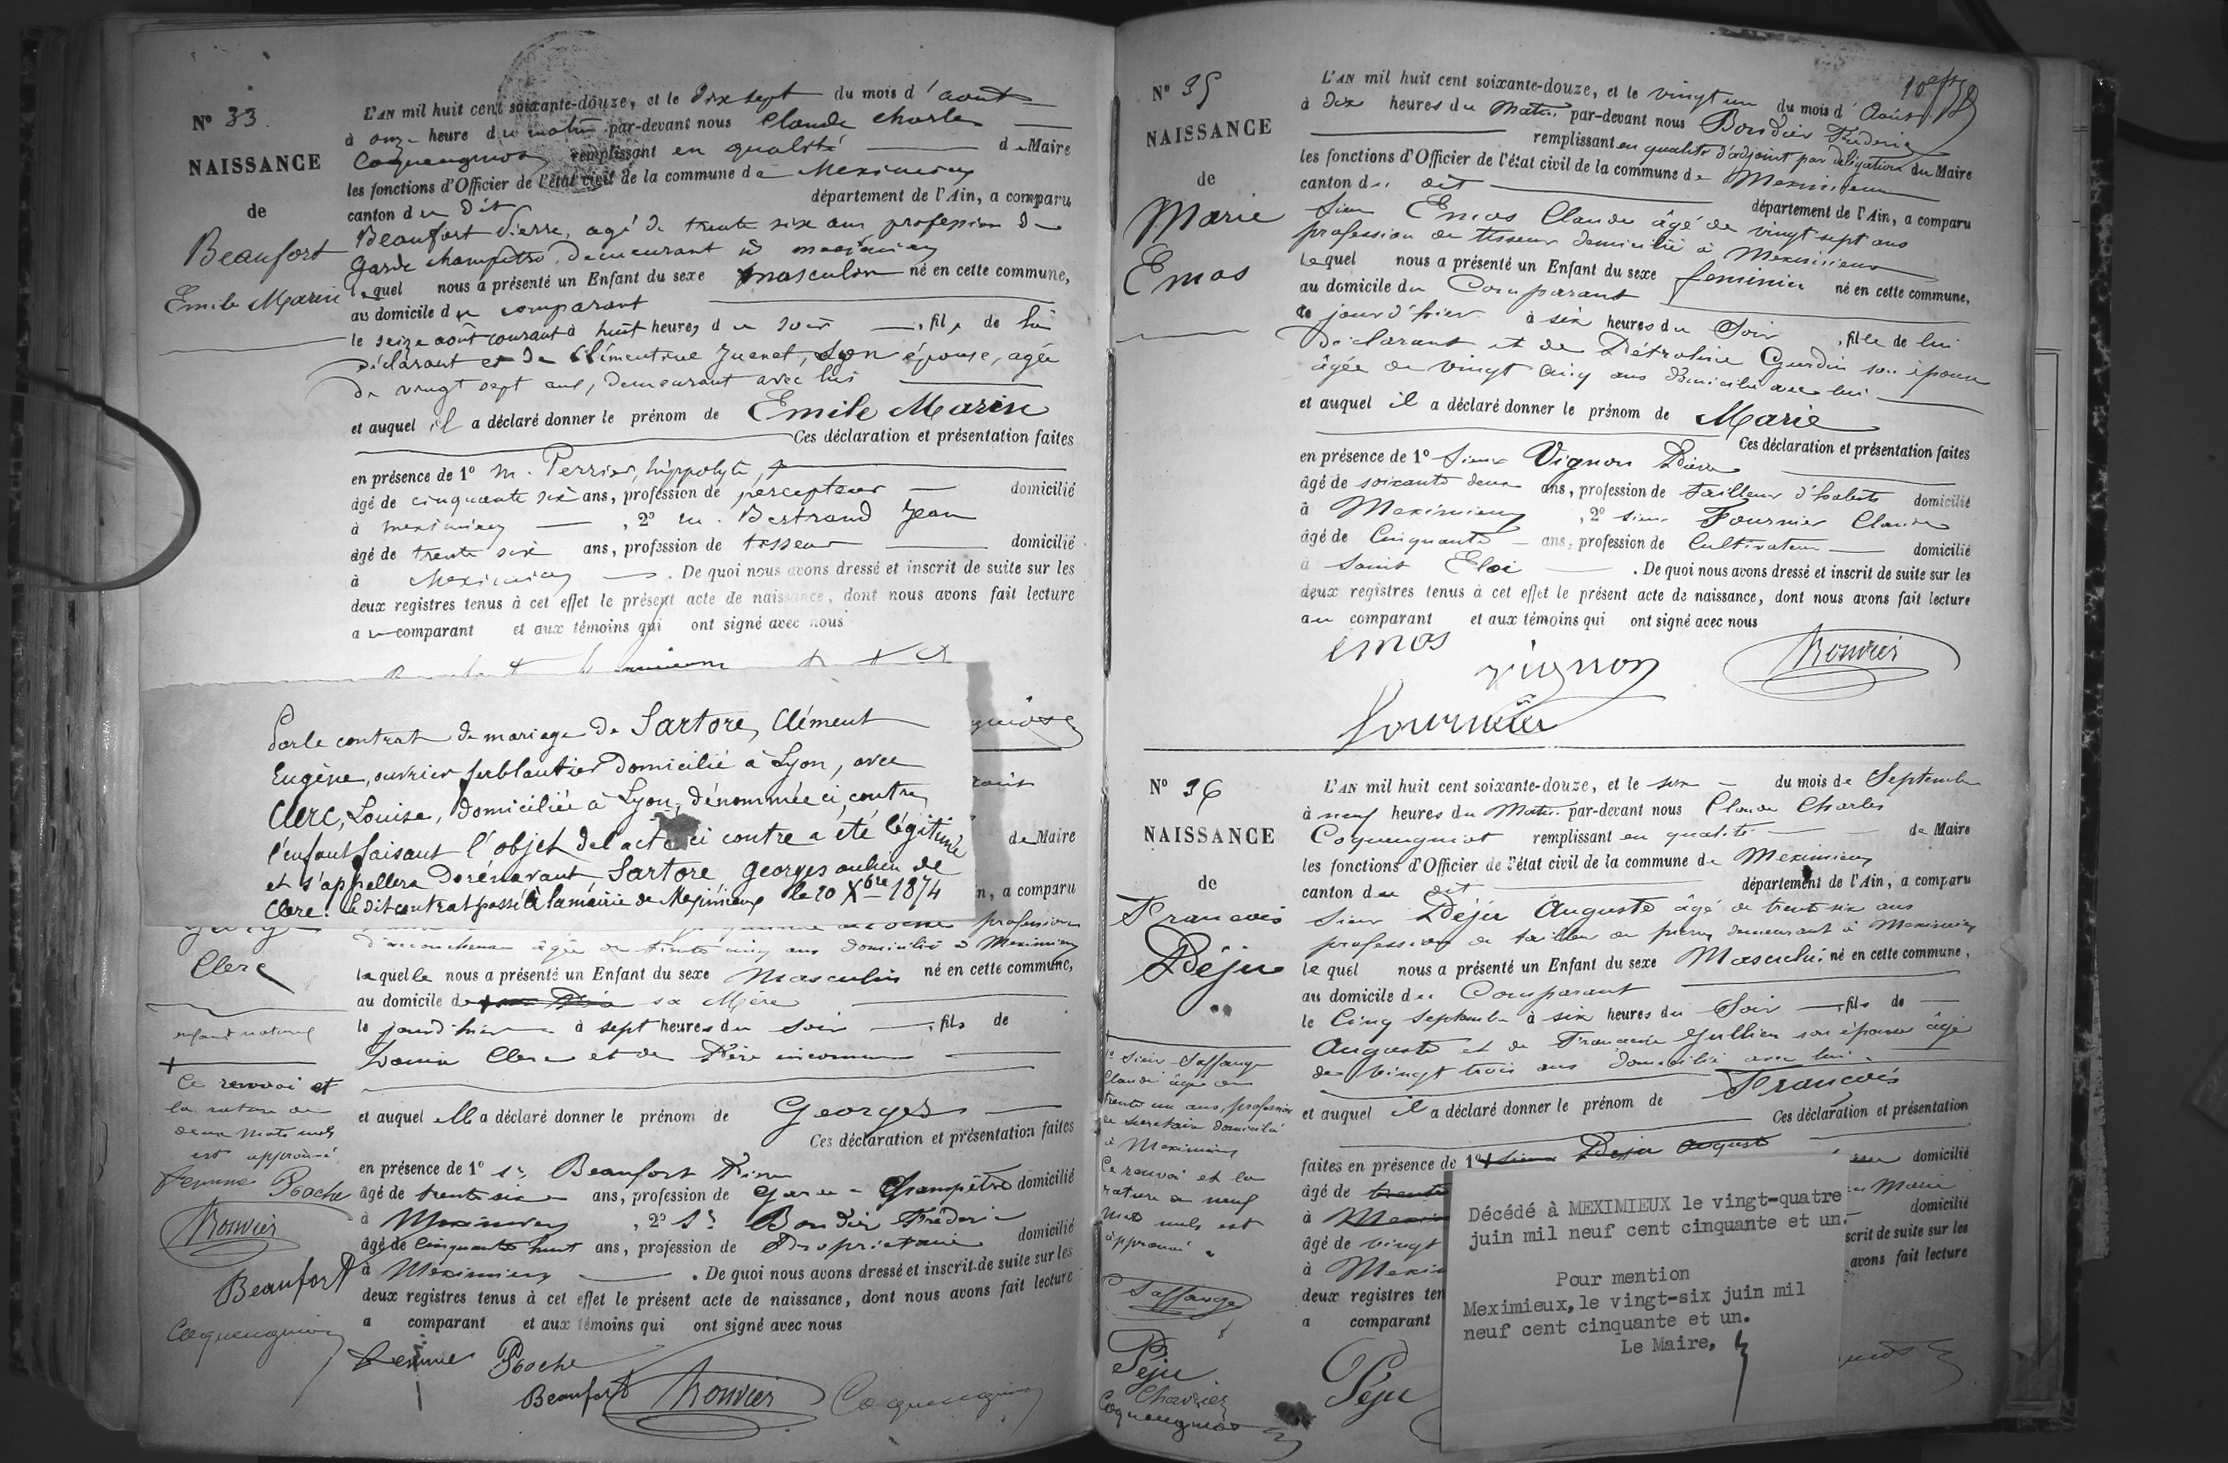 N° 33.
NAISSANCE
de
Beaufort
Emile Marin
L'AN mil huit cent soixante-douze, et le dix sept du mois d'août
à onze heure du matin par-devant nous Claude Charles
Coquengniot remplissant en qualité de Maire
les fonctions d'Officier de l'état civil de la commune de Meximieux
canton du dit département de l'Ain, a comparu
Beaufort Pierre, agé de trente six ans profession de
garde champêtre demeurant à meximieux
lequel nous a présenté un Enfant du sexe masculin né en cette commune,
au domicile du comparant
le seize août courant à huit heures du soir, fils de lui
déclarant et de Clémentine Juenet, son épouse, agée
de vingt sept ans, demeurant avec lui
et auquel il a déclaré donner le prénom de Emile Marin
Ces déclaration et présentation faites
en présence de 1° M. Perrier, hippolyte,
âgé de cinquante six ans, profession de percepteur domicilié
à meximieux, 2° M. Bertrand Jean
âgé de trente six ans, profession de tisseur domicilié
à Meximieux. De quoi nous avons dressé et inscrit de suite sur les
deux registres tenus à cet effet le présent acte de naissance, dont nous avons fait lecture
au comparant et aux témoins qui ont signé avec nous
Par le contrat de mariage de Sartore, Clément
Eugène, ouvrier ferblantier domicilié à Lyon, avec
Clerc, Louise, domiciliée à Lyon, dénommée ci contre,
l'enfant faisant l'objet de l'acte ci contre a été légitimé
et s'appellera dorénavant Sartore Georges au lieu de
Clerc. Le dit contrat passé à la mairie de Meximieux le 20 Xbre 1874
de Maire
n, a comparu
profession
d'accoucheuse âgée de trente cinq ans domiciliée à Meximieux
Clerc
enfant naturel
laquelle nous a présenté un Enfant du sexe Masculin né en cette commune,
au domicile de sa Mère
le jour d'hier à sept heures du soir, fils de
Louise Clerc et de Père inconnu
et auquel elle a déclaré donner le prénom de Georges
Ces déclaration et présentation faites
en présence de 1° Sr Beaufort Pierre
âgé de trente six ans, profession de Garde Champêtre domicilié
à Meximieux, 2° Sr Bouvier Fréderic
âgé de cinquante huit ans, profession de Propriétaire domicilié
à Meximieux. De quoi nous avons dressé et inscrit de suite sur les
deux registres tenus à cet effet le présent acte de naissance, dont nous avons fait lecture
a comparant et aux témoins qui ont signé avec nous
Ce renvoi et
la rature de
deux mots nuls
est approuvé
femme Roche
Bouvier
Beaufort
Coquengniot
femme Roche
Beaufort Bouvier Coquengniot
N° 35
NAISSANCE
de
Marie
Emos
L'AN mil huit cent soixante-douze, et le vingt un du mois d'Août
à dix heures du Matin par-devant nous Bouvier Fréderic
remplissant en qualité d'adjoint par délégation du Maire
les fonctions d'Officier de l'état civil de la commune de Meximieux
canton du dit département de l'Ain, a comparu
Sieur Emos Claude âgé de vingt sept ans
profession de tisseur domicilié à Meximieux
lequel nous a présenté un Enfant du sexe feminin né en cette commune,
au domicile du Comparant
le jour d'hier à six heures du Soir, fille de lui
Déclarant et de Pétroline Gourdin son épouse
âgée de vingt cinq ans domicilié avec lui
et auquel il a déclaré donner le prénom de Marie
Ces déclaration et présentation faites
en présence de 1° Sieur Vignon Pierre
âgé de soixante deux ans, profession de tailleur d'habits domicilié
à Meximieux, 2° sieur Fournier Claude
âgé de Cinquante ans, profession de Cultivateur domicilié
à Saint Eloi. De quoi nous avons dressé et inscrit de suite sur les
deux registres tenus à cet effet le présent acte de naissance, dont nous avons fait lecture
au comparant et aux témoins qui ont signé avec nous
emos
vignon
Bouvier
fournier
N° 36
NAISSANCE
de
Francois
Péju
L'AN mil huit cent soixante-douze, et le six du mois de Septembre
à neuf heures du Matin par-devant nous Claude Charles
Coquengniot remplissant en qualité de Maire
les fonctions d'Officier de l'état civil de la commune de Meximieux
canton du dit département de l'Ain, a comparu
Sieur Péju Auguste âgé de trente six ans
profession de tailleur de pierre demeurant à Meximieux
lequel nous a présenté un Enfant du sexe Masculin né en cette commune,
au domicile du Comparant
le Cinq septembre à six heures du Soir, fils de
Auguste et de Francoise Jullien son épouse âgé
de vingt trois ans domicilié avec lui
et auquel il a déclaré donner le prénom de Francois
Ces déclaration et présentation
faites en présence de 1° sieur Péju Auguste domicilié
âgé de trente
à Mexi domicilié
âgé de vingt scrit de suite sur les
à Mexi avons fait lecture
deux registres ten
a comparant
1° Sieur Saffange
Claude âgé de
trente un ans, profession
de secretaire domicilié
à Meximieux
Ce renvoi et la
rature de neuf
mots nuls est
approuvé
Saffange
Péju
Chavrier
Coquengniot
Péju
Décédé à MEXIMIEUX le vingt-quatre
juin mil neuf cent cinquante et un.
Pour mention
Meximieux, le vingt-six juin mil
neuf cent cinquante et un.
Le Maire,